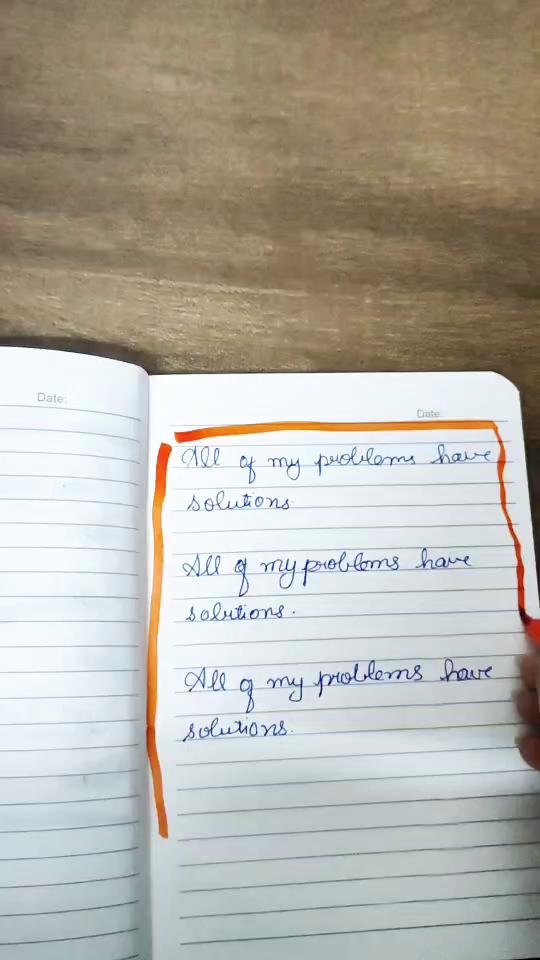 Date:
Date:
All of my problems have
solutions
All of my problems have
solutions.
All of my problems have
solutions.